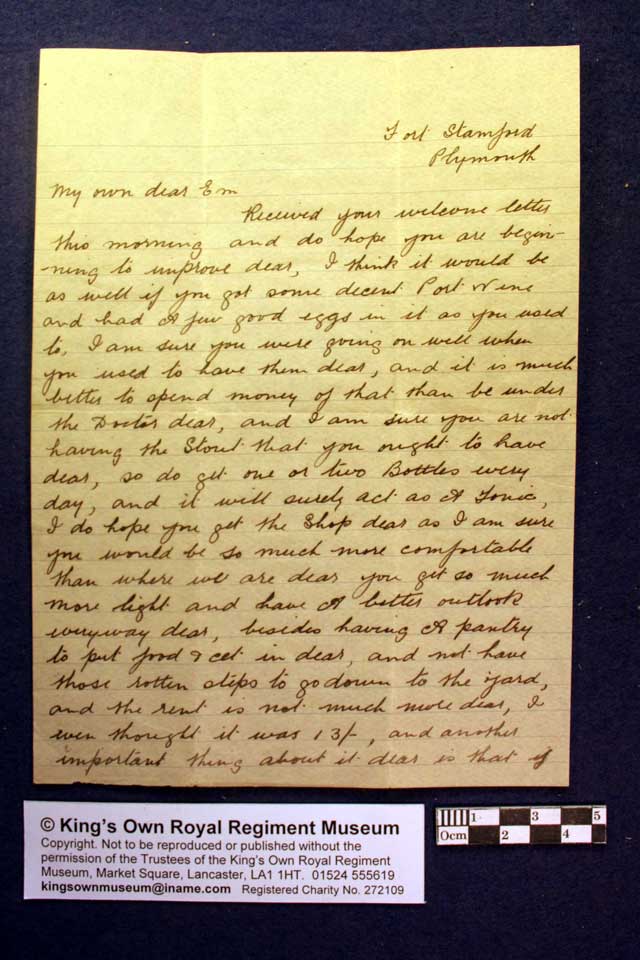 Fort Stamford
Plymouth
My own dear Em
Received your welcome letter
this morning and do hope you are begin-
-ning to improve dear, I think it would be
as well if you got some decent Port Wine
and had A few good eggs in it as you used
to, I am sure you were going on well when
you used to have them dear, and it is much
better to spend money of that than be under
the Doctor dear, and I am sure you are not
having the Stout that you ought to have
dear, so do get one or two Bottles every
day, and it will surely act as A Tonic,
I do hope you get the Shop dear as I am sure
you would be so much more comfortable
than where we are dear you get so much
more light and have A better outlook
everyway dear, besides having A pantry
to put food & cet in dear, and not have
those rotten steps to go down to the yard,
and the rent is not much more dear, I
even thought it was 13/-, and another
important thing about it dear is that if
© King's Own Royal Regiment Museum
Copyright. Not to be reproduced or published without the
permission of the Trustees of the King's Own Royal Regiment
Museum, Market Square, Lancaster, LA1 1HT. 01524 555619
kingsownmuseum@iname.com Registered Charity No. 272109
1 3 5
0cm 2 4